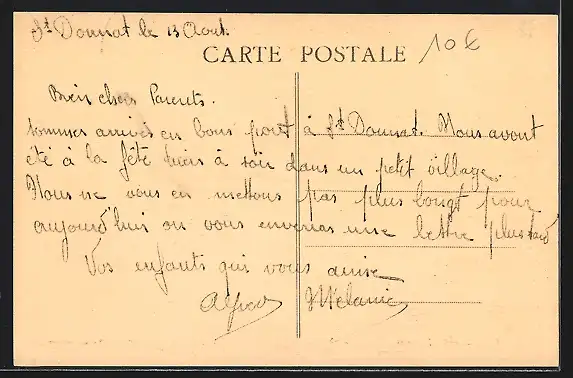 St Donnat le 13 Aout.
CARTE POSTALE
10€
Bien chers Parents.
sommes arrivés en bons port à St Donnat. Nous avont
été à la fête hiers à soir dans un petit village.
Nous ne vous en mettons pas plus longt pour
aujourd'hui on vous enverras une lettre plus tard
Vos enfants qui vous aime
Alfred Mélanie